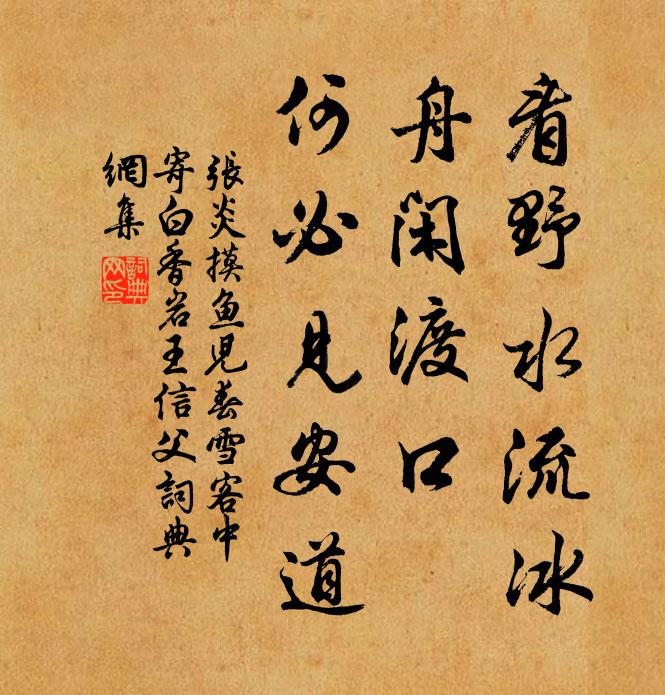 看野水流冰
舟閑渡口
何必見安道
張炎摸魚児春雪客中
寄白香岩王信父詞典
網集
詞典
网印